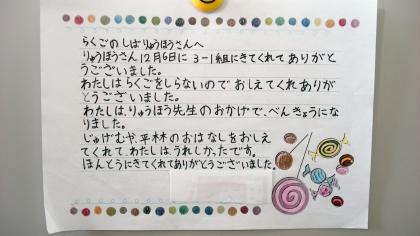 らくごのしばりゅうほうさんへ
りゅうほうさん12月6日に 3-1組にきてくれて ありがと
うございました。
わたしは らくごをしらないので おしえてくれ ありが
とうございました。
わたしは、りゅうほう先生のおかげで、べんきょうにな
りました。
じゅげむや、平林のおはなしをおしえ
てくれて、わたしは、うれしかったです。
ほんとうにきてくれてありがとうございました。